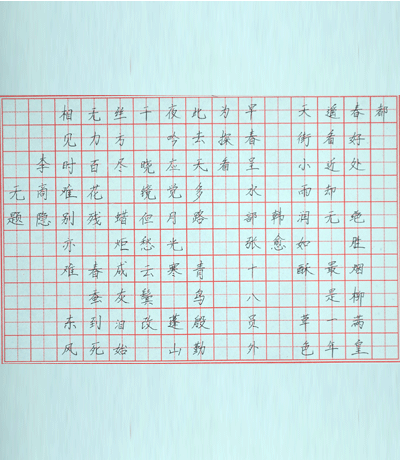 都
春好处 绝胜烟柳满皇
遥看近却无 最是一年
天街小雨润如酥 草色
韩愈
早春呈水部张十八员外
为探看
此去天多路 青鸟殷勤
夜吟应觉月光寒 蓬山
干 晓镜但愁云鬓改
丝方尽 蜡炬成灰泪始
无力百花残 春蚕到死
相见时难别亦难 东风
李商隐
无题